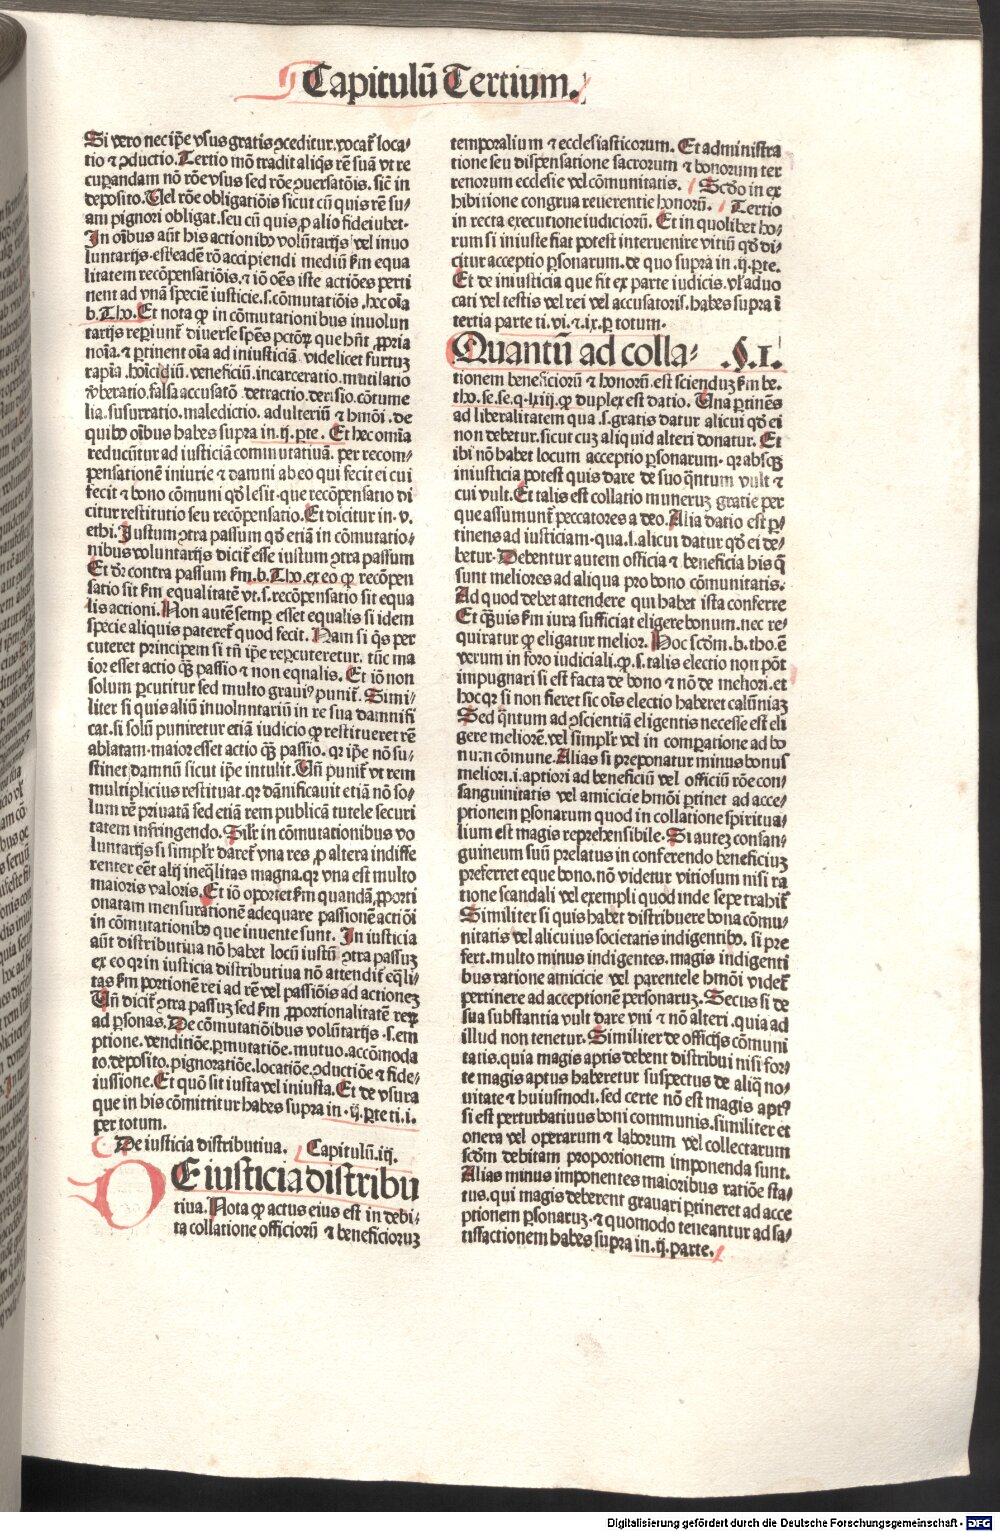 Capitulū Tertium.
Si vero nec ip̄e vsus gratis ꝯceditur. vocat̄ loca-
tio ⁊ ꝯductio. Tertio mō tradit aliq̄s rē suā vt re
cuꝑandam nō rōe vsus sed rōe ꝯuersatōis. sic̄ in
deposito. Uel rōe obligatiōis sicut cū quis rē su-
am pignori obligat. seu cū quis ꝓ alio fideiubet.
In oībus aūt his actionibꝰ volūtarijs vel inuo
luntarijs. est eadē rō accipiendi mediū ẜm equa
litatem recōpensatiōis. ⁊ iō oēs iste actiōes perti
nent ad vnā speciē iusticie. s. cōmutatiōis. hec oīa
b. Tho. Et nota ꝙ in cōmutationibus inuolun
tarijs reꝑiunt̄ diuerse spēs pctōꝝ que hn̄t ꝓpria
noīa. ⁊ ꝑtinent oīa ad iniusticiā. videlicet furtuꝫ
rapīa. hoīcidiū. veneficiū. incarceratio. mutilatio
ꝟberatio. falsa accusatō. detractio. derisio. cōtume
lia. susurratio. maledictio. adulteriū ⁊ hmōi. de
quibꝰ oībus habes supra in. ij. ꝑte. Et hec omīa
reducūtur ad iusticiā commutatiuā. per recom-
pensationē iniurie ⁊ damni ab eo qui fecit ei cui
fecit ⁊ bono cōmuni qd̄ lesit. que recōpensatio di
citur restitutio seu recōpensatio. Et dicitur in. v.
ethi. Iustum ꝯtra passum qd̄ etiā in cōmutatio-
nibus voluntarijs dicit̄ esse iustum ꝯtra passum
Et dr̄ contra passum ẜm. b. Tho. ex eo ꝙ recōpen
satio sit ẜm equalitatē vt. s. recōpensatio sit equa
lis actioni. Non autē semꝑ esset equalis si idem
specie aliquis pateret̄ quod fecit. Nam si q̄s per
cuteret principem si tn̄ ip̄e reꝑcuteretur. tūc ma
ior esset actio qꝫ passio ⁊ non equalis. Et iō non
solum ꝑcutitur sed multo grauiꝰ punit̄. Simi-
liter si quis aliū inuoluntariū in re sua damnifi
cat. si solū puniretur etiā iudicio ꝙ restitueret rē
ablatam. maior esset actio qꝫ passio. qr ip̄e nō su-
stinet damnū sicut ip̄e intulit. Un̄ punit̄ vt rem
multiplicius restituat. qr dānificauit etiā nō so-
lum rē priuatā sed etiā rem publicā tutele securi
tatem infringendo. Silr̄ in cōmutationibus vo
luntarijs si simplr̄ daret̄ vna res ꝓ altera indiffe
renter eēt alīj ineq̄litas magna. qr vna est multo
maioris valoris. Et iō oportet ẜm quandā ꝓporti
onatam mensurationē adequare passionē actiōi
in cōmutationibꝰ que inuente sunt. In iusticia
aūt distributiua nō habet locū iustū ꝯtra passuꝫ
ex eo qr in iusticia distributiua nō attendit̄ eq̄li-
tas ẜm portionē rei ad rē vel passiōis ad actioneꝫ
Un̄ dicit̄ ꝯtra passuꝫ sed ẜm ꝓportionalitatē reꝝ
ad ꝑsonas. De cōmutatiōibus volūtarijs. s. em
ptione. venditiōe. ꝑmutatiōe. mutuo. accōmoda
to. deposito. pignoratiōe. locatiōe. ꝯductiōe ⁊ fide-
iussione. Et quō sit iusta vel iniusta. Et de vsura
que in his cōmittitur habes supra in. ij. ꝑte ti. i.
per totum.
De iusticia distributiua. Capitulū. iij.
DE iusticia distribu
tiua. Nota ꝙ actus eius est in debi-
ta collatione officiorū ⁊ beneficioruꝫ
temporalium ⁊ ecclesiasticorum. Et administra
tione seu dispensatione sacrorum ⁊ bonorum ter
renorum ecclesie vel cōmunitatis. Scd̄o in ex
hibitione congrua reuerentie honorū. Tertio
in recta executione iudiciorū. Et in quolibet ho-
rum si iniuste fiat potest interuenire vitiū qd̄ di-
citur acceptio ꝑsonarum. de quo supra in. ij. ꝑte.
Et de iniusticia que fit ex parte iudicis. vl̄ aduo
cati vel testis vel rei vel accusatoris. habes supra ī
tertia parte ti. vi. ⁊. ix. ꝑ totum.
Quantū ad colla- .§. I.
tionem beneficiorū ⁊ honorū. est sciendꝫ ẜm be.
tho. se. se. q. lxiij. ꝙ duplex est datio. Una ꝑtinēs
ad liberalitatem qua. s. gratis datur alicui qd̄ ei
non debetur. sicut cuꝫ aliquid alteri donatur. Et
ibi nō habet locum acceptio ꝑsonarum. qr absqꝫ
iniusticia potest quis dare de suo q̄ntum vult ⁊
cui vult. Et talis est collatio muneruꝫ gratie per
que assumunt̄ peccatores a deo. Alia datio est ꝑ-
tinens ad iusticiam. qua. s. alicui datur qd̄ ei de-
betur. Debentur autem officia ⁊ beneficia his q̄
sunt meliores ad aliqua pro bono cōmunitatis.
Ad quod debet attendere qui habet ista conferre
Et qꝫuis ẜm iura sufficiat eligere bonum. nec re-
quiratur ꝙ eligatur melior. Hoc scd̄m. b. tho. ē
verum in foro iudiciali. ꝙ. s. talis electio non pōt
impugnari si est facta de bono ⁊ nō de meliori. et
hoc qr si non fieret sic oīs electio haberet calūniaꝫ
Sed q̄ntum ad ꝯscientiā eligentis necesse est eli
gere meliorē. vel simplr̄ vel in comꝑatione ad bo
num cōmune. Alias si preponatur minus bonus
meliori. i. aptiori ad beneficiū vel officiū rōe con-
sanguinitatis vel amicicie hmōi ꝑtinet ad acce-
ptionem ꝑsonarum quod in collatione spiritua-
lium est magis reprehensibile. Si auteꝫ consan-
guineum suū prelatus in conferendo beneficiuꝫ
preferret eque bono. nō videtur vitiosum nisi ra
tione scandali vel exempli quod inde sepe trahit̄
Similiter si quis habet distribuere bona cōmu-
nitatis vel alicuius societatis indigentibꝰ. si pre
fert. multo minus indigentes. magis indigenti
bus ratione amicicie vel parentele hmōi videt̄
pertinere ad acceptionē personaruꝫ. Secus si de
sua substantia vult dare vni ⁊ nō alteri. quia ad
illud non tenetur. Similiter de officijs cōmuni
tatis. quia magis aptis debent distribui nisi for-
te magis aptus haberetur suspectus de aliq̄ no-
uitate ⁊ huiusmodi. sed certe nō est magis aptꝰ
si est perturbatiuus boni communis. similiter et
onera vel operarum ⁊ laborum vel collectarum
scd̄m debitam proportionem imponenda sunt.
Alias minus imponentes maioribus ratiōe sta-
tus. qui magis deberent grauari ꝑtineret ad acce
ptionem ꝑsonaruꝫ. ⁊ quomodo teneantur ad sa-
tissactionem habes supra in. ij. parte.
Digitalisierung gefördert durch die Deutsche Forschungsgemeinschaft - DFG